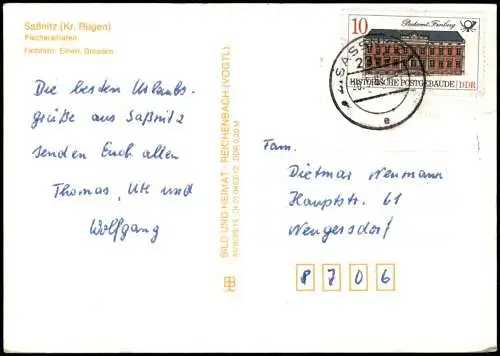 Saßnitz (Kr. Rügen)
Fischereihafen
Farbfoto: Ellert, Dresden
Die besten Urlaubs-
grüße aus Saßnitz
senden Euch allen
Thomas, Ute und
Wolfgang
BILD UND HEIMAT · REICHENBACH (VOGTL)
10
Postamt Freiberg
HISTORISCHE POSTGEBÄUDE DDR
SASSNITZ
e
Fam.
Dietmar Neumann
Hauptstr. 61
Nengersdorf
8706